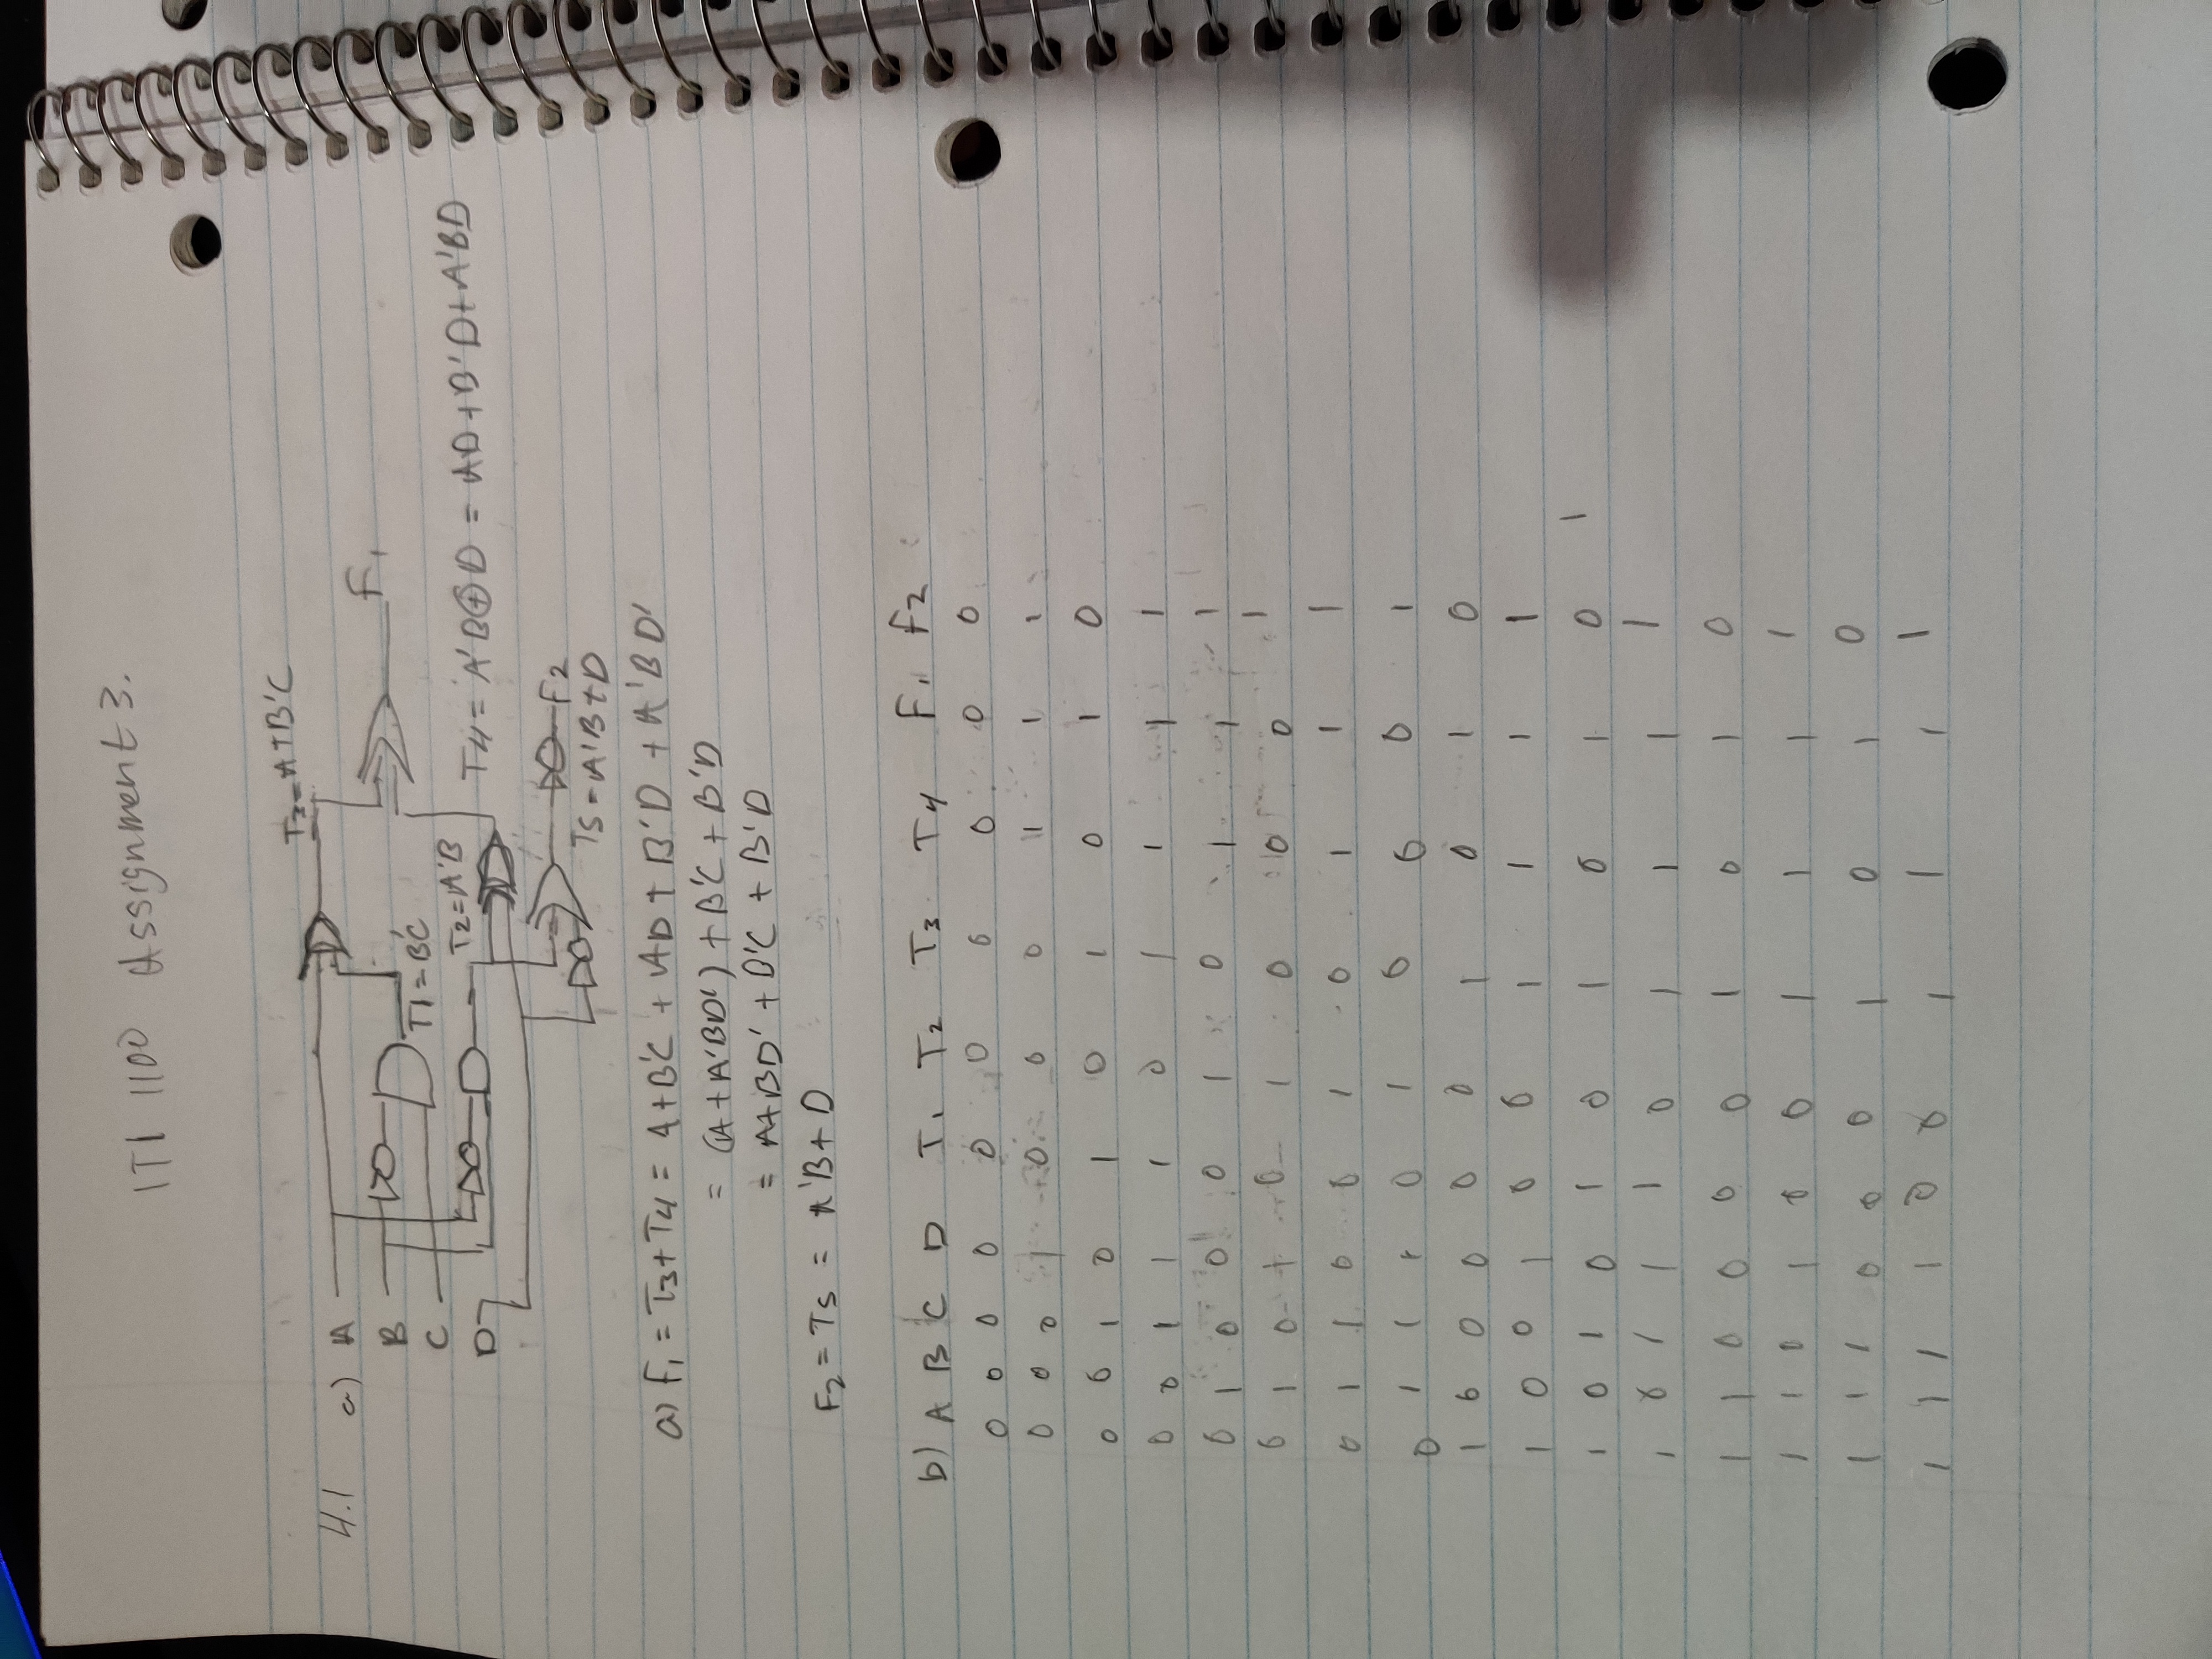 ITI 1100 Assignment 3.
4.1 a) A
B
C
D
T3=A+B'C
F1
T1=B'C
T2=A'B
T4= A'B⊕D = AD+B'D+A'BD
F2
T5=A'B+D
a) F1 = T3+T4 = A+B'C + AD + B'D + A'BD'
= (A+A'BD') + B'C + B'D
= A+BD' + B'C + B'D
F2 = T5 = A'B+D
b) A B C D T1 T2 T3 T4 F1 F2
0 0 0 0 0 0 0 0 0 0
0 0 0 1 0 0 0 1 1 1
0 0 1 0 1 0 1 0 1 0
0 0 1 1 1 0 1 1 1 1
0 1 0 0 0 1 0 1 1 1
0 1 0 1 0 1 0 0 0 1
0 1 1 0 0 1 0 1 1 1
0 1 1 1 0 1 0 0 0 1
1 0 0 0 0 0 1 0 1 0
1 0 0 1 0 0 1 1 1 1
1 0 1 0 1 0 1 0 1 0 1
1 0 1 1 1 0 1 1 1 1
1 1 0 0 0 0 1 0 1 0
1 1 0 1 0 0 1 1 1 1
1 1 1 0 0 0 1 0 1 0
1 1 1 1 0 0 1 1 1 1